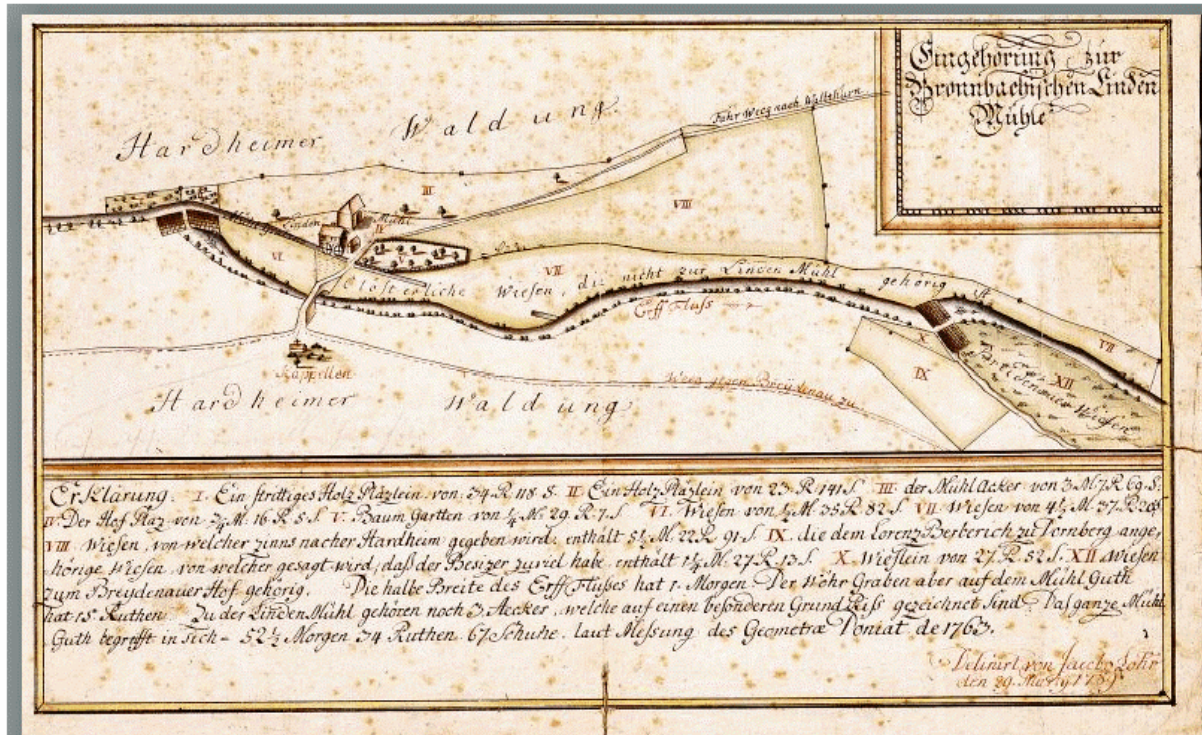 Eingehörung zur
Bronnbachischen Linden
Mühle
Hardheimer Waldung
Fahr Weeg nach Wallthurn
III
Linden Mühl
IV
V
VI
VII
VIII
Clösterliche Wiesen, die nicht zur Linden Mühl gehörig ist
Erff Fluss
VII
X
IX
XII
Breidenauer Wiesen
Kappellen
Weeg gegen Breydenau zu
Hardheimer Waldung
Erklärung. I. Ein strittiges Holz Pläzlein von 34 R. 118 S. II Ein Holz Pläzlein von 23 R. 141 S. III der Mühl Acker von 3 M. 7 R. 69 S.
IV Der Hof Plaz von ¾ M. 16 R. 5 S. V. Baum Gartten von ¼ M. 29 R. 7 S. VI. Wiesen von ½ M. 35 R. 82 S. VII Wiesen von 4½ M. 37 R.
VIII Wiesen, von welcher zinns nacher Hardheim gegeben wird, enthält 5½ M. 22 R. 91 S. IX die dem Lorenz Berberich zu Dornberg ange,
hörige Wiesen, von welcher gesagt wird, daß der Besizer zuviel habe, enthält 1¼ M. 27 R. 13 S. X. Wießlein von 27 R. 52 S. XII Wiesen
zum Breydenauer Hof gehörig. Die halbe Breite des Erff Flußes hat 1. Morgen. Der Wöhr Graben aber auf dem Mühl Guth
hat 15 Ruthen. Zu der Linden Mühl gehören noch 3 Aecker, welche auf einen besonderen Grund Riß gezeichnet sind. Das ganze Mühl
Guth begreifft in sich - 52½ Morgen 34 Ruthen 67 Schuhe. laut Messung des Geometræ Doniat de 1763.
Delinirt von Jacob Lohr
den 29.